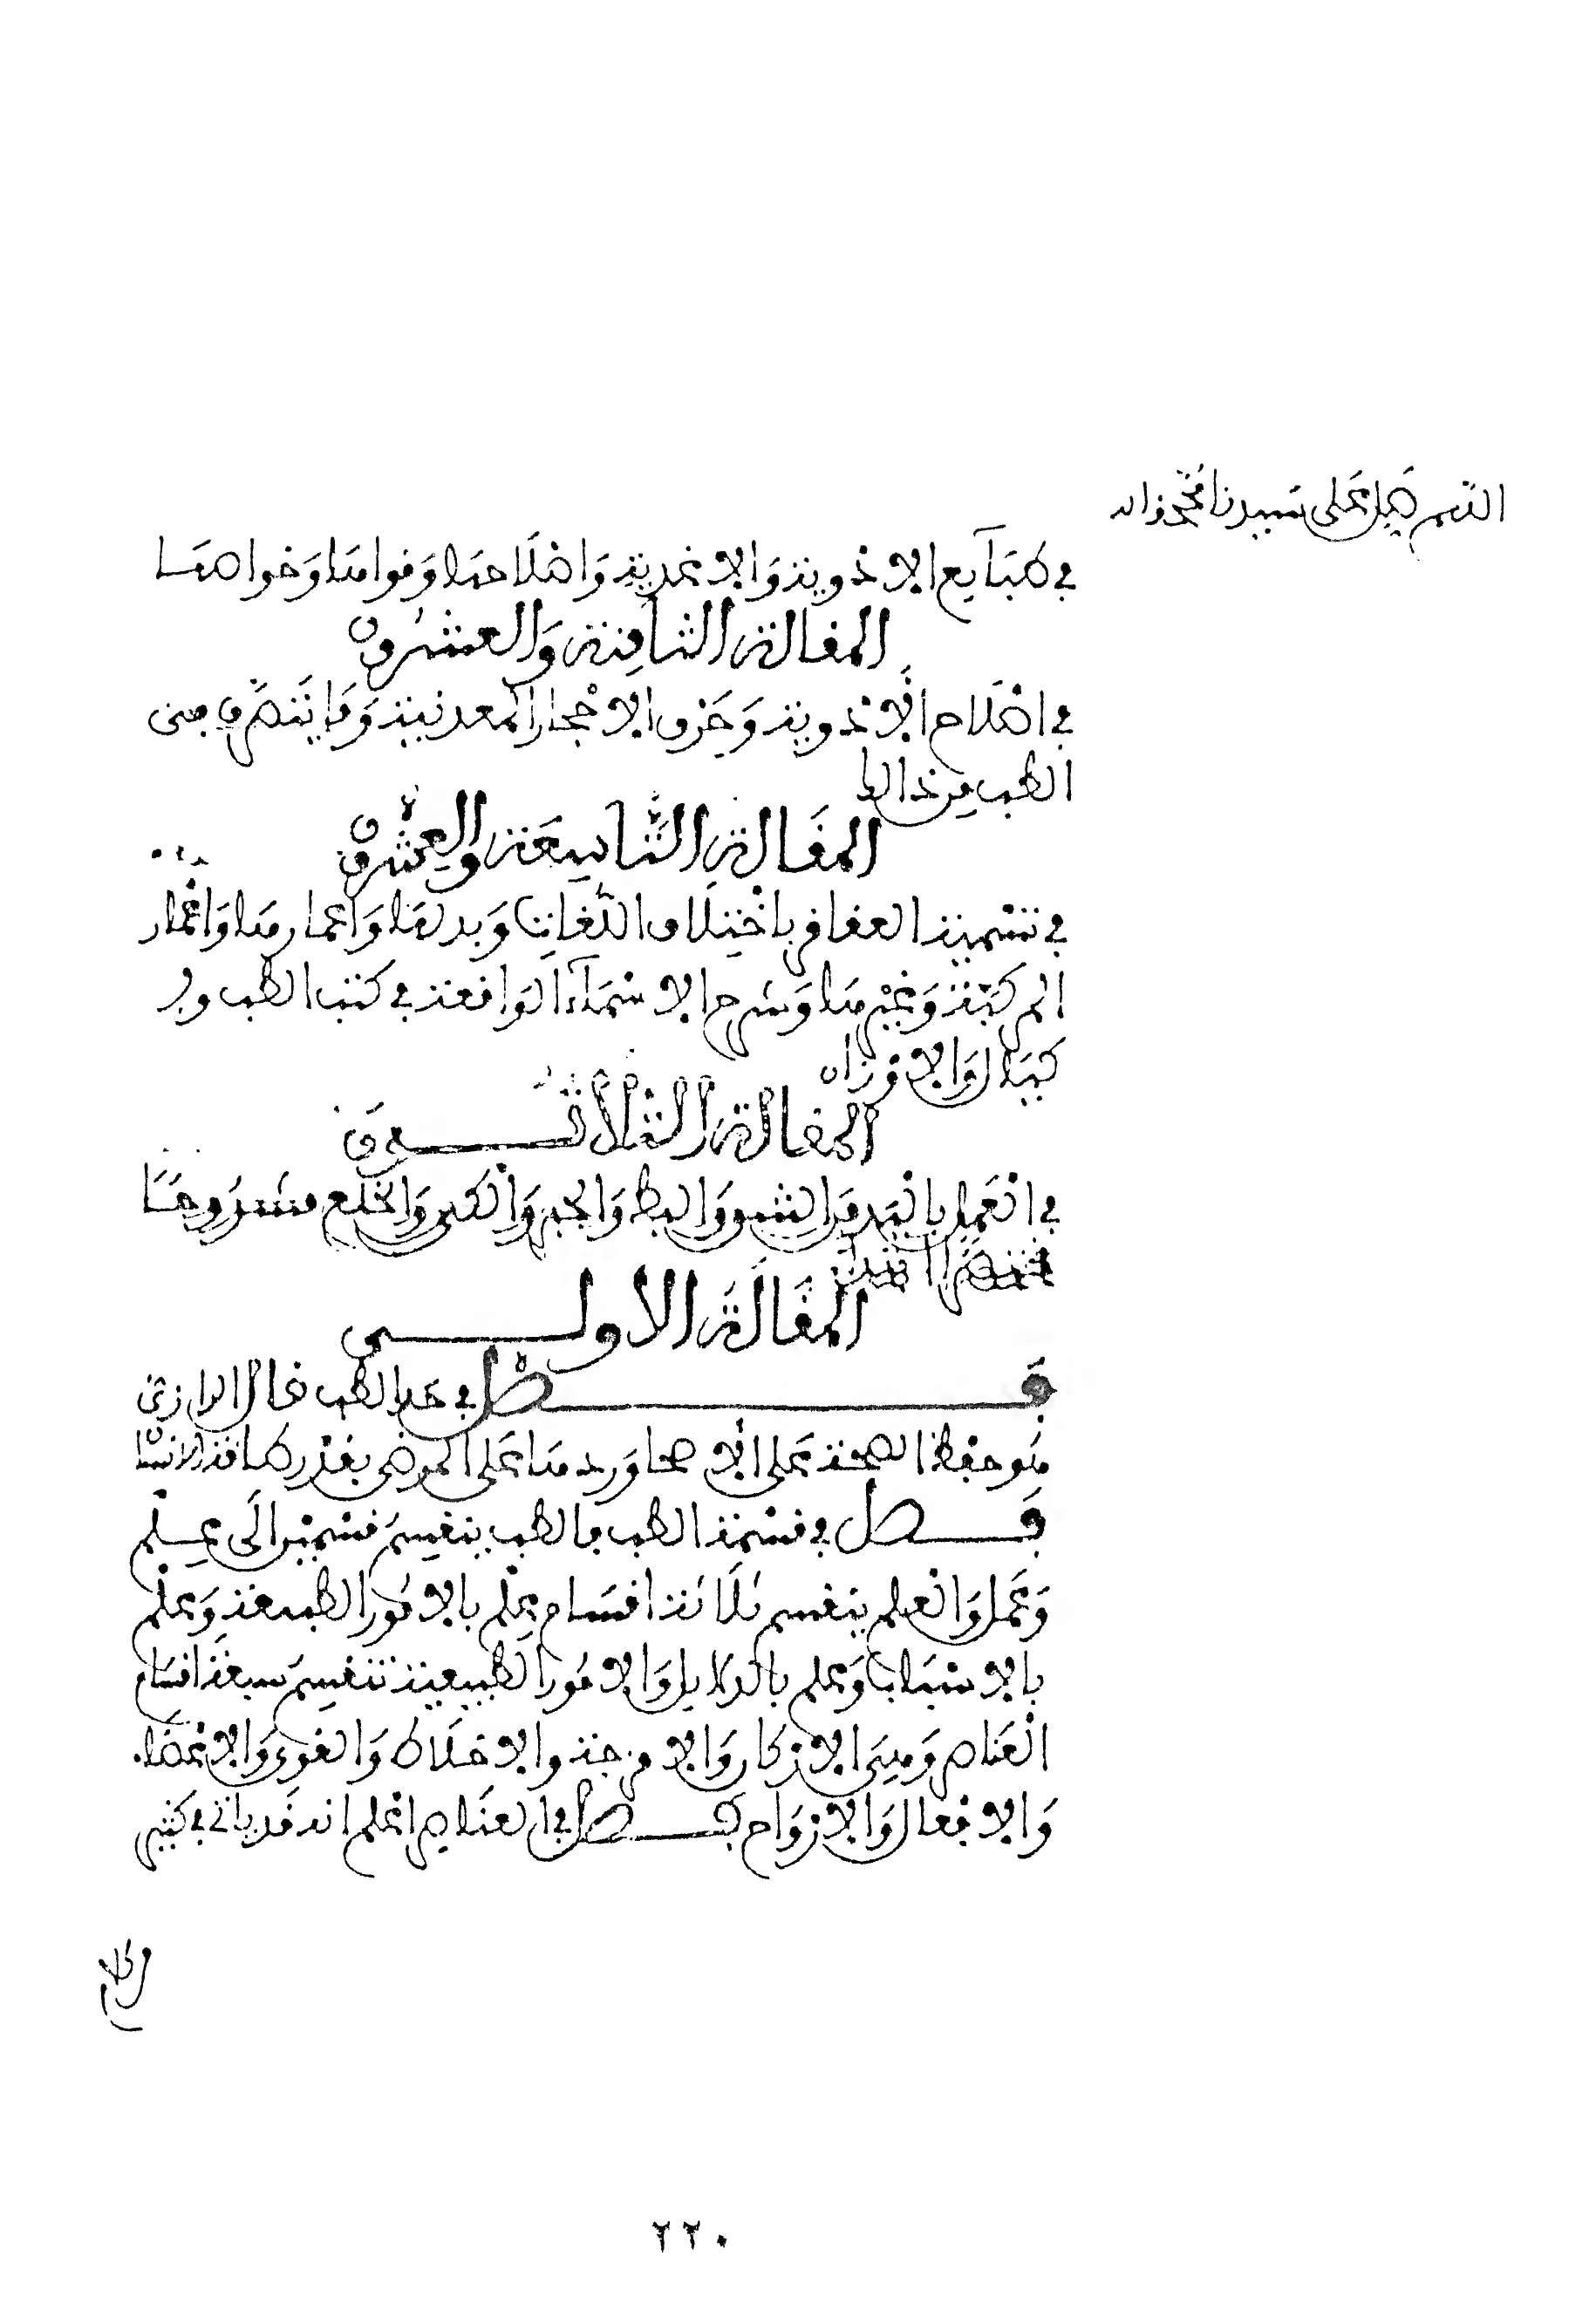 اللهم صل على سيدنا محمد واله
في طبآيع الادوية والاغدية واصلاحها وقواها وخواصها
المقالة الثامنة والعشرون
في اصلاح الادوية وحرق الاحجار المعدنية وما يتصرف من
الطب من ذالك
المقالة التاسعة والعشرون
في تسمية العقاقر باختلاف اللغات وبدلها واعمارها واعمار
المركبة وغيرها وشرح الاسمآء الواقعة في كتب الطب
والاوزان
المقالة الثلاثون
في العمل باليد من الشق والبط والجبر والكي والخلع مشروحا
المقالة الاولى
فصل في حد الطب قال الرازي
هو حفظ الصحة على الاصحا وردها على المرضى بقدر طاقة الانسان
فصل في قسمة الطب فالطب ينقسم قسمين الى علم
وعمل والعلم ينقسم ثلاثة اقسام علم بالامور الطبيعة وعلم
بالاسباب وعلم بالدلايل والامور الطبيعية تنقسم سبعة اقسام
العناصر وهي الاركان والامزجة والاخلاط والقوى والاعضا
والافعال والارواح فصل في العناصر اعلم انه قد ياتي في كثير
من كلام
٢٢٠